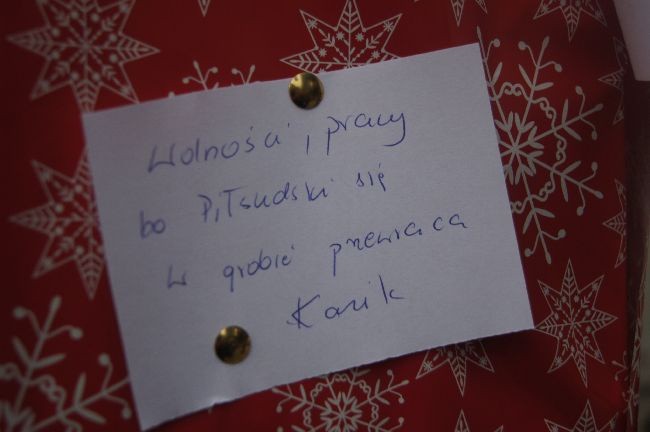 Wolności i pracy
bo Piłsudski się
w grobie przewraca
Kazik